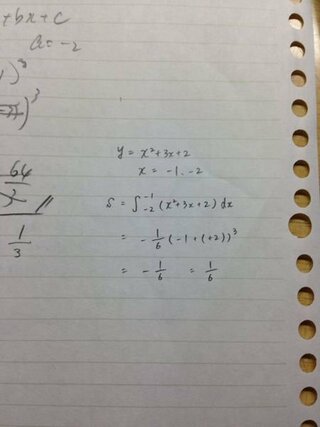 +bx+c
a = -2
)³
)³
64
1/3
y = x²+3x+2
x = -1, -2
S = ∫₋₂⁻¹ (x²+3x+2) dx
= - 1/6 (-1+(+2))³
= - 1/6 = 1/6